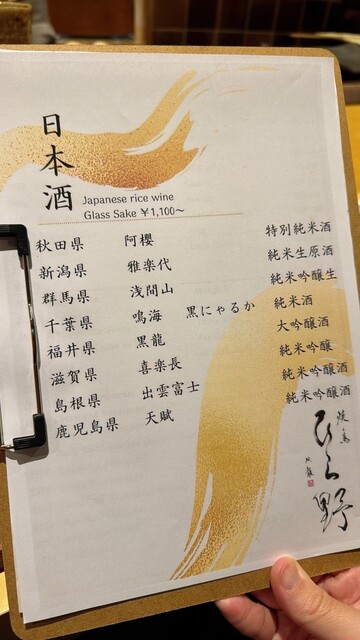 日本酒
Japanese rice wine
Glass Sake ¥1,100~
秋田県 阿櫻 特別純米酒
新潟県 雅楽代 純米生原酒
群馬県 浅間山 純米吟醸生
千葉県 鳴海 黒にゃるか 純米酒
福井県 黒龍 大吟醸酒
滋賀県 喜楽長 純米吟醸
島根県 出雲富士 純米吟醸酒
鹿児島県 天賦 純米吟醸酒
焼鳥
ひら野